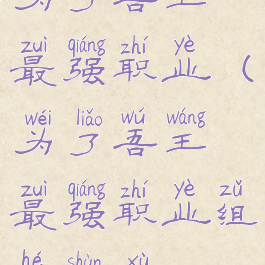 为了吾王
zuì qiáng zhí yè
最强职业（
wéi liǎo wú wáng
为了吾王
zuì qiáng zhí yè zǔ
最强职业组
hé shùn xù